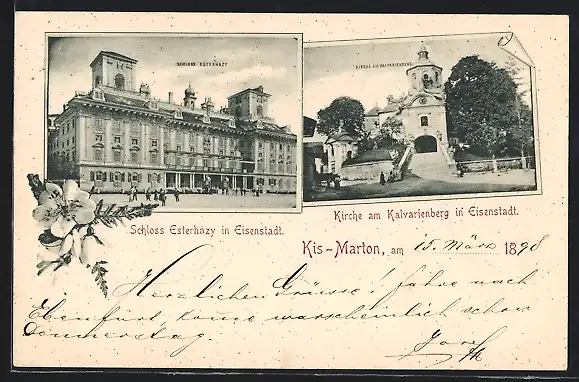 SCHLOSS ESTERHÁZY
KIRCHE AM KALVARIENBERG
Schloss Esterházy in Eisenstadt.
Kirche am Kalvarienberg in Eisenstadt.
Kis-Marton, am 15. März 1898
Herzlichen Grüsse! fahre nach
Ebenfurt, komme warscheinlich schon
Donnerstag. Josef